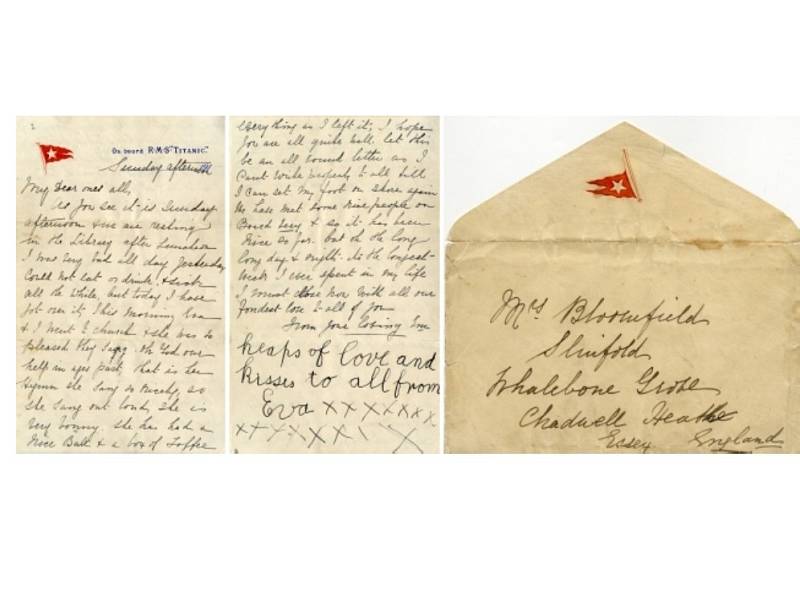 On board R.M.S "TITANIC."
Sunday afternoon
My Dear ones all,
As you see it is Sunday
afternoon & we are resting
in the Library after Luncheon
I was very bad all day yesterday
Could not eat or drink, & sick
all the while, but today I have
got over it, This morning Eva
& I went to church & she was so
pleased they sang Oh God our
help in ages past, that is her
Hymn she sang so nicely, so
she sang out loud, she is
very bonny. She has had a
nice Ball & a box of Toffee
everything as I left it, I hope
you are all quite well, let this
be an all round letter as I
Cant write properly to all till
I can set my foot on shore again
We have met some nice people on
Board Lucy & so it has been
Nice so far. but oh the long
long day & night. its the longest
Week I ever spent in my life
I must close now With all our
fondest love to all of you
From your loving Em
heaps of love and
kisses to all from
Eva xxxxxxx
xxxxxxx
Mrs Bloomfield
Slinfold
Whalebone Grove
Chadwell Heath
Essex England